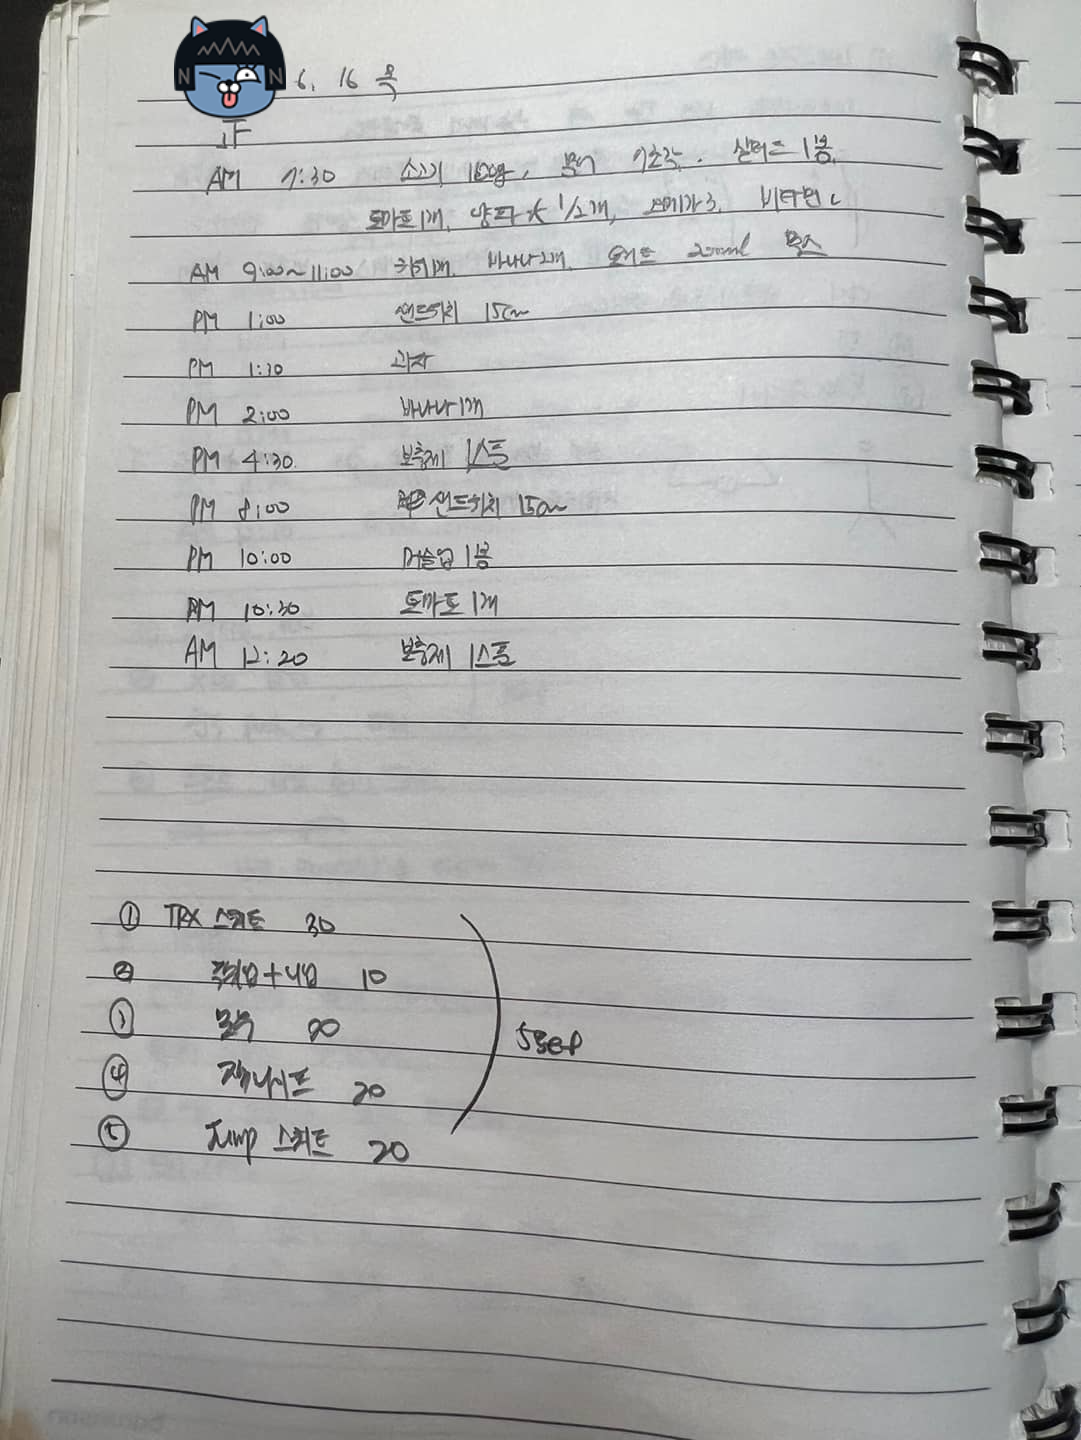 6. 16 목
正
AM 7:30 소고기 100g, 문어 7조각. 샐러드 1봉.
토마토 1개, 양파 大 1/2개, 오메가3, 비타민 C
AM 9:00~11:00 키위1개, 바나나2개, 200ml
PM 1:00 샌드위치 15cm
PM 1:30 과자
PM 2:00 바나나 1개
PM 4:30 보충제 1스푼
PM 8:00 샌드위치 15cm
PM 10:00 머슬업 1봉
PM 10:30 토마토 1개
AM 12:20 보충제 1스푼
① TRX 스쿼트 30
② 푸쉬업+니업 10
③ 20
④ 잭나이프 20
⑤ Jump 스쿼트 20
5set